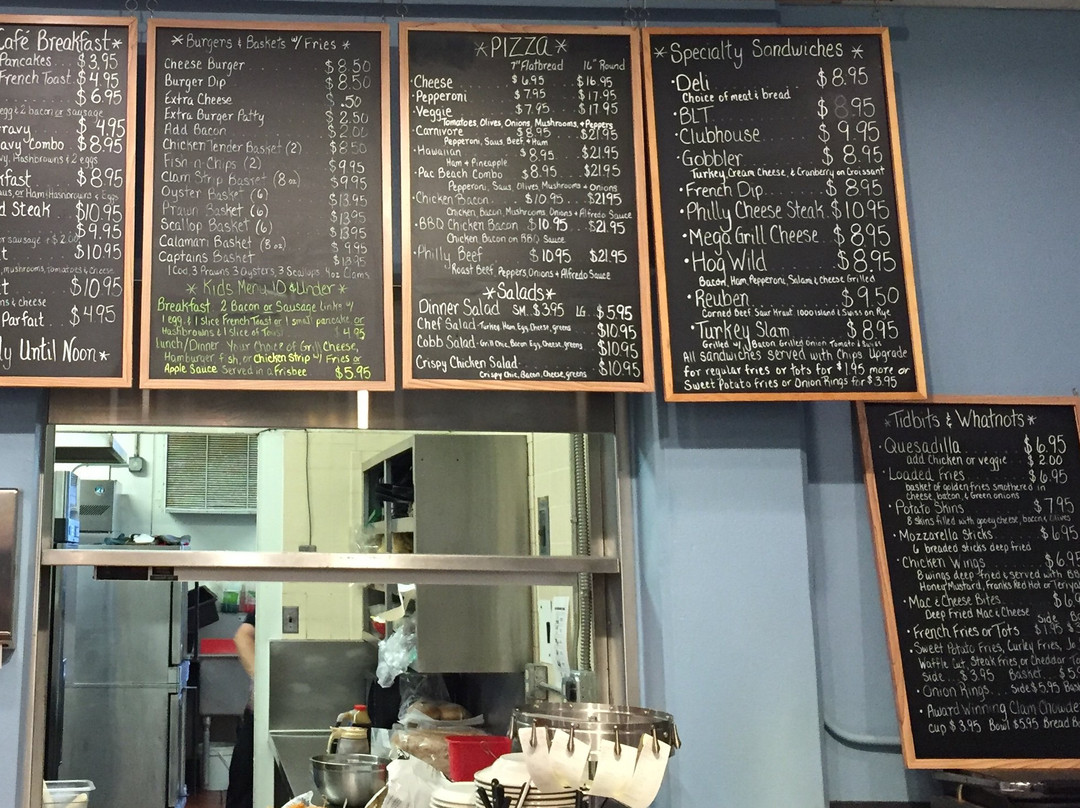 Café Breakfast*
Pancakes $3.95
French Toast $4.95
$6.95
egg & 2 bacon or sausage
$4.95
Combo $8.95
Hashbrowns & 2 eggs
$8.95
or Ham, Hashbrowns & Eggs
Steak $10.95
$9.95
or sausage + $2.00
$10.95
mushrooms, tomatoes & cheese
$10.95
& cheese
Parfait $4.95
Until Noon*
*Burgers & Baskets w/ Fries *
Cheese Burger $8.50
Burger Dip $8.50
Extra Cheese $.50
Extra Burger Patty $2.50
Add Bacon $2.00
Chicken Tender Basket (2) $8.50
Fish-n-Chips (2) $9.95
Clam Strip Basket (8oz) $9.95
Oyster Basket (6) $13.95
Prawn Basket (6) $13.95
Scallop Basket (6) $13.95
Calamari Basket (8oz) $9.95
Captains Basket $18.95
1 Cod, 3 Prawns 3 Oysters, 3 Scallops 4oz Clams
* Kids Menu 10 & Under *
Breakfast 2 Bacon or Sausage Links w/
1 egg, & 1 slice French Toast or 1 small pancake or
Hashbrowns & 1 slice of Toast 4.95
Lunch/Dinner Your Choice of Grill Cheese,
Hamburger fish, or Chicken Strip w/ Fries or
Apple Sauce Served in a Frisbee $5.95
*PIZZA*
7" Flatbread 16" Round
·Cheese $6.95 $16.95
·Pepperoni $7.95 $17.95
·Veggie $7.95 $17.95
Tomatoes, Olives, Onions, Mushrooms, + Peppers
·Carnivore $8.95 $21.95
Pepperoni, Saus, Beef, & Ham
·Hawaiian $8.95 $21.95
Ham + Pineapple
·Pac Beach Combo $8.95 $21.95
Pepperoni, Saus, Olives, Mushrooms + Onions
·Chicken Bacon $10.95 $21.95
Chicken, Bacon, Mushrooms, Onions + Alfredo Sauce
·BBQ Chicken Bacon $10.95 $21.95
Chicken Bacon on BBQ Sauce
·Philly Beef $10.95 $21.95
Roast Beef, Peppers, Onions + Alfredo Sauce
*Salads*
Dinner Salad SM. $3.95 LG. $5.95
Chef Salad Turkey, Ham, Egg, Cheese, greens $10.95
Cobb Salad Grill Chic, Bacon, Egg, Cheese, greens $10.95
Crispy Chicken Salad $10.95
Crispy Chic, Bacon, Cheese, greens
* Specialty Sandwiches *
·Deli $8.95
Choice of meat & bread
·BLT $8.95
·Clubhouse $9.95
·Gobbler $8.95
Turkey, Cream Cheese, & Cranberry on Croissant
·French Dip $8.95
·Philly Cheese Steak $10.95
·Mega Grill Cheese $8.95
·Hog Wild $8.95
Bacon, Ham, Pepperoni, Salami & Cheese Grilled
·Reuben $9.50
Corned Beef Saur Kraut 1000 island & Swiss on Rye
·Turkey Slam $8.95
Grilled w/ Bacon Grilled Onion Tomato & Swiss
All sandwiches served with Chips Upgrade
for regular fries or tots for $1.95 more or
Sweet Potato Fries or Onion Rings for $3.95
*Tidbits & Whatnots*
·Quesadilla $6.95
add Chicken or veggie $2.00
·Loaded Fries $6.95
basket of golden fries smothered in
cheese, bacon, & Green onions
·Potato Skins $7.95
8 skins filled with gooey cheese, bacon & Chives
·Mozzarella Sticks $6.95
6 breaded sticks deep fried
·Chicken Wings $6.95
8 wings deep fried & served with
Honey Mustard, Franks Red Hot or
·Mac & Cheese Bites
Deep Fried Mac & Cheese Side
·French Fries or Tots $1.95
·Sweet Potato Fries, Curley Fries,
Waffle Cut, Steak Fries or Cheddar
Side $3.95 Basket
·Onion Rings Side $5.95
·Award Winning Clam Chowder
cup $3.95 Bowl $5.95 Bread